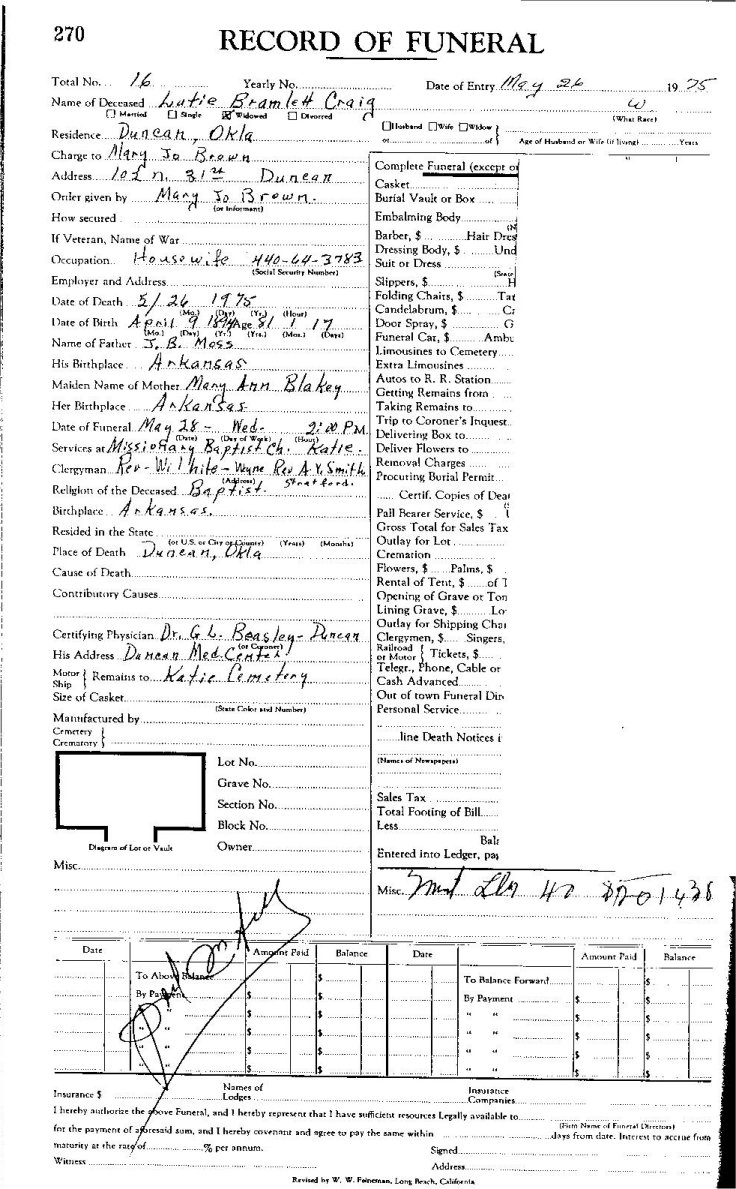 270
RECORD OF FUNERAL
Total No. 16 Yearly No. Date of Entry May 26 1975
Name of Deceased Lutie Bramlett Craig W
Married Single Widowed Divorced (What Race)
Residence Duncan, Okla
Husband Wife Widow
or of Age of Husband or Wife (if living) Years
Charge to Mary Jo Brown
Address 101 n. 31st Duncan
Order given by Mary Jo Brown.
(or Informant)
How secured
If Veteran, Name of War
Occupation Housewife 440-64-3783
(Social Security Number)
Employer and Address
Date of Death 5/26 1975
(Mo.) (Day) (Yr.) (Hour)
Date of Birth April 9 1894 Age 81 1 17
(Mo.) (Day) (Yr.) (Yrs.) (Mos.) (Days)
Name of Father J. B. Moss
His Birthplace Arkansas
Maiden Name of Mother Mary Ann Blakey
Her Birthplace Arkansas
Date of Funeral May 28 - Wed. 2:00 PM
(Date) (Day of Week) (Hour)
Services at Missionary Baptist Ch. Katie.
Clergyman Rev - Wilhite - Wayne Rev A. Y. Smith
(Address) Stratford.
Religion of the Deceased Baptist.
Birthplace Arkansas.
Resided in the State
(or U.S. or City or County) (Years) (Months)
Place of Death Duncan, Okla
Cause of Death
Contributory Causes
Certifying Physician Dr. G L. Beasley - Duncan
(or Coroner)
His Address Duncan Med. Center
Motor
Ship Remains to Katie Cemetery
Size of Casket
(State Color and Number)
Manufactured by
Cemetery
Crematory
Lot No.
Grave No.
Section No.
Block No.
Diagram of Lot or Vault Owner
Misc.
Complete Funeral (except o
Casket
Burial Vault or Box
Embalming Body
(N
Barber, $ Hair Dres
Dressing Body, $ Und
Suit or Dress
(State
Slippers, $ H
Folding Chairs, $ Tar
Candelabrum, $ Ca
Door Spray, $ G
Funeral Car, $ Ambu
Limousines to Cemetery
Extra Limousines
Autos to R. R. Station
Getting Remains from
Taking Remains to
Trip to Coroner's Inquest
Delivering Box to
Deliver Flowers to
Removal Charges
Procuring Burial Permit
Certif. Copies of Dea
Pall Bearer Service, $
Gross Total for Sales Tax
Outlay for Lot
Cremation
Flowers, $ Palms, $
Rental of Tent, $ of T
Opening of Grave or Tom
Lining Grave, $ Lo
Outlay for Shipping Char
Clergymen, $ Singers,
Railroad
or Motor Tickets, $
Telegr., Phone, Cable or
Cash Advanced
Out of town Funeral Dir
Personal Service
line Death Notices i
(Names of Newspapers)
Sales Tax
Total Footing of Bill
Less
Bala
Entered into Ledger, pag
Misc.
Date Amount Paid Balance Date Amount Paid Balance
To Above Balance $ To Balance Forward $
By Payment $ $ By Payment $ $
" " $ $ " " $ $
" " $ $ " " $ $
" " $ $ " " $ $
" " $ $ " " $ $
Insurance $ Names of Lodges Insurance Companies
I hereby authorize the above Funeral, and I hereby represent that I have sufficient resources Legally available to
(Firm Name of Funeral Directors)
for the payment of aforesaid sum, and I hereby covenant and agree to pay the same within days from date. Interest to accrue from
maturity at the rate of % per annum. Signed
Witness Address
Revised by W. W. Feineman, Long Beach, California